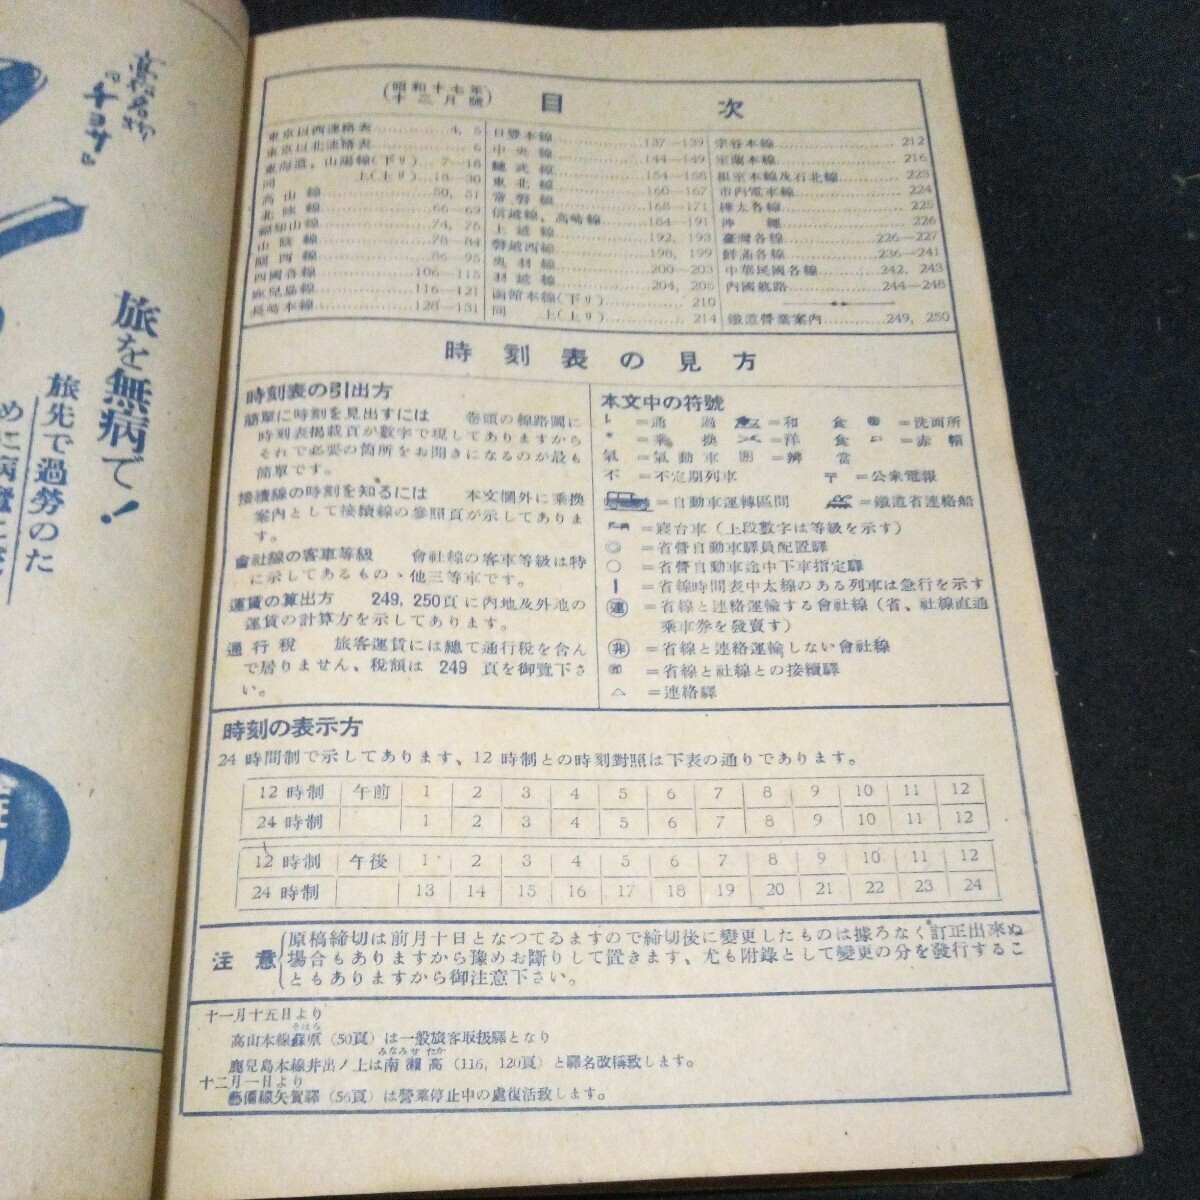 高松名物
『チヨサ』
旅を無病で！
旅先で過勞のた
昭和十七年
十二月號
目次
東京以西連絡表 4, 5
東京以北連絡表 6
東海道，山陽線(下リ) 7—18
同 上(上リ) 18—30
高山線 50, 51
北陸線 66—69
山陰線 78—84
關西線 86—95
四國各線 106—115
鹿兒島線 116—121
長崎本線 126—131
日豐本線 137—139
中央線 144—149
總武線 154—158
東北線 160—167
常磐線 168—171
信越線，高崎線 184—191
上越線 192, 193
磐越西線 198, 199
奥羽線 200—203
羽越線 204, 205
函館本線(下リ) 210
同 上(上リ) 214
宗谷本線 212
室蘭本線 216
根室本線及石北線 223
市內電車線 224
樺太各線 225
沖繩 226
臺灣各線 226—227
鮮滿各線 236—241
中華民國各線 242, 243
內國航路 244—248
鐵道營業案內 249, 250
時刻表の見方
時刻表の引出方
簡單に時刻を見出すには 巻頭の線路圖に
時刻表掲載頁が數字で現してありますから
それで必要の箇所をお開きになるのが最も
簡單です。
接續線の時刻を知るには 本文欄外に乘換
案內として接續線の參照頁が示してありま
す。
會社線の客車等級 會社線の客車等級は特
に示してあるもの、他三等車です。
運賃の算出方 249, 250頁に內地及外地の
運賃の計算方を示してあります。
通行税 旅客運賃には總て通行税を含ん
で居りません、税額は 249 頁を御覽下さ
い。
本文中の符號
レ =通過 =和食 =洗面所
* =乘換 =洋食 =赤帽
氣 =氣動車 =辨當
不 =不定期列車 〒 =公衆電報
=自動車運轉區間 =鐵道省連絡船
=寢台車 (上段數字は等級を示す)
◎ =省營自動車驛員配置驛
○ =省營自動車途中下車指定驛
| =省線時間表中太線のある列車は急行を示す
㊣連 =省線と連絡運輸する會社線 (省、社線直通
乘車券を發賣す)
非 =省線と連絡運輸しない會社線
=省線と社線との接續驛
△ =連絡驛
時刻の表示方
24 時間制で示してあります、12 時制との時刻對照は下表の通りであります。
12 時制 午前 1 2 3 4 5 6 7 8 9 10 11 12
24 時制 1 2 3 4 5 6 7 8 9 10 11 12
12 時制 午後 1 2 3 4 5 6 7 8 9 10 11 12
24 時制 13 14 15 16 17 18 19 20 21 22 23 24
注意
原稿締切は前月十日となつてゐますので締切後に變更したものは據ろなく訂正出來ぬ
場合もありますから豫めお斷りして置きます、尤も附錄として變更の分を發行するこ
ともありますから御注意下さい。
十一月十五日より
高山本線蘇原 (50頁) は一般旅客取扱驛となり
そはら
鹿兒島本線井出ノ上は南瀬高 (116, 120頁) と驛名改稱致します。
みなみせたか
十二月一日より
藝備線矢賀驛 (56頁) は營業停止中の處復活致します。